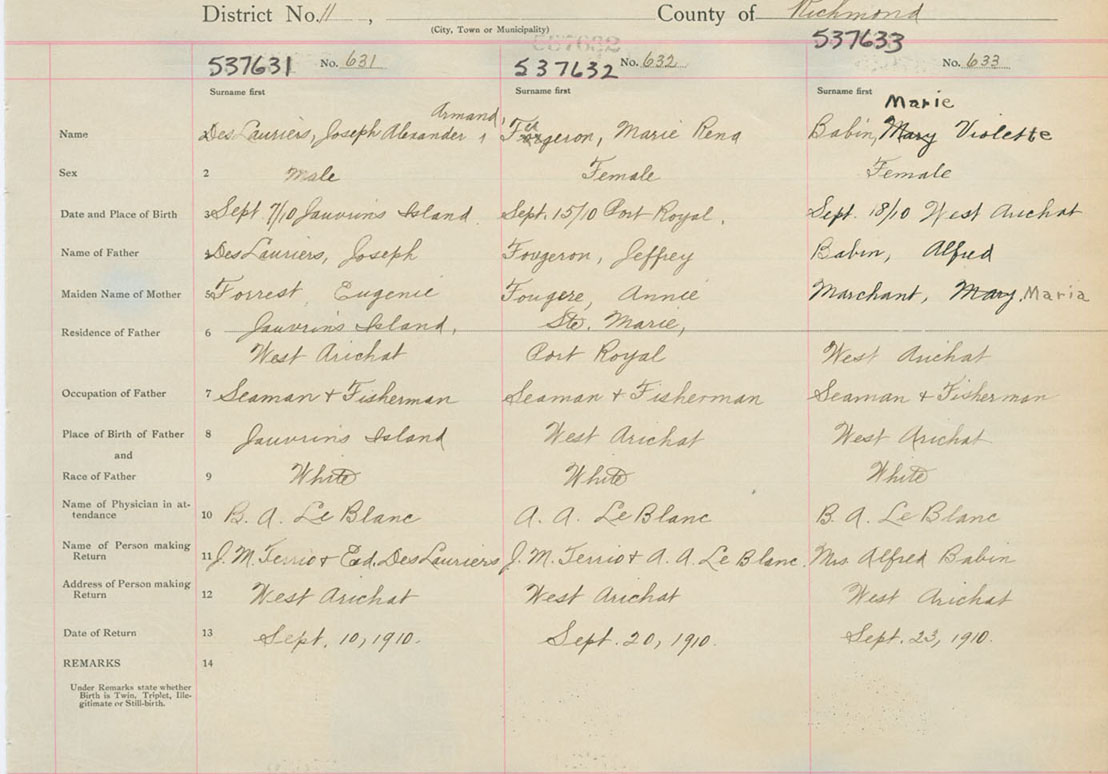 District No. 11 , County of Richmond
(City, Town or Municipality)
537631 No. 631 537632 No. 632 537633 No. 633
Surname first Surname first Surname first
Armand, Marie
Name DesLauriers, Joseph Alexander Fougeron, Marie Rena Babin, Mary Violette
Sex 2 Male Female Female
Date and Place of Birth 3 Sept 7/10 Jauvrins Island. Sept. 15/10 Port Royal. Sept. 18/10 West Arichat
Name of Father 4 DesLauriers, Joseph Fougeron, Jeffrey Babin, Alfred
Maiden Name of Mother 5 Forrest Eugenie Fougere, Annie Marchant, Mary, Maria
Residence of Father 6 Jauvrins Island, Ste. Marie,
West Arichat Port Royal West Arichat
Occupation of Father 7 Seaman + Fisherman Seaman + Fisherman Seaman + Fisherman
Place of Birth of Father 8 Jauvrins Island West Arichat West Arichat
and
Race of Father 9 White White White
Name of Physician in at-
tendance 10 B. A. Le Blanc A. A. Le Blanc B. A. Le Blanc
Name of Person making
Return 11 J. M. Terrio + Ed. DesLauriers J. M. Terrio + A. A. Le Blanc. Mrs. Alfred Babin
Address of Person making
Return 12 West Arichat West Arichat West Arichat
Date of Return 13 Sept. 10, 1910. Sept. 20, 1910. Sept. 23, 1910.
REMARKS 14
Under Remarks state whether
Birth is Twin, Triplet, Ille-
gitimate or Still-birth.